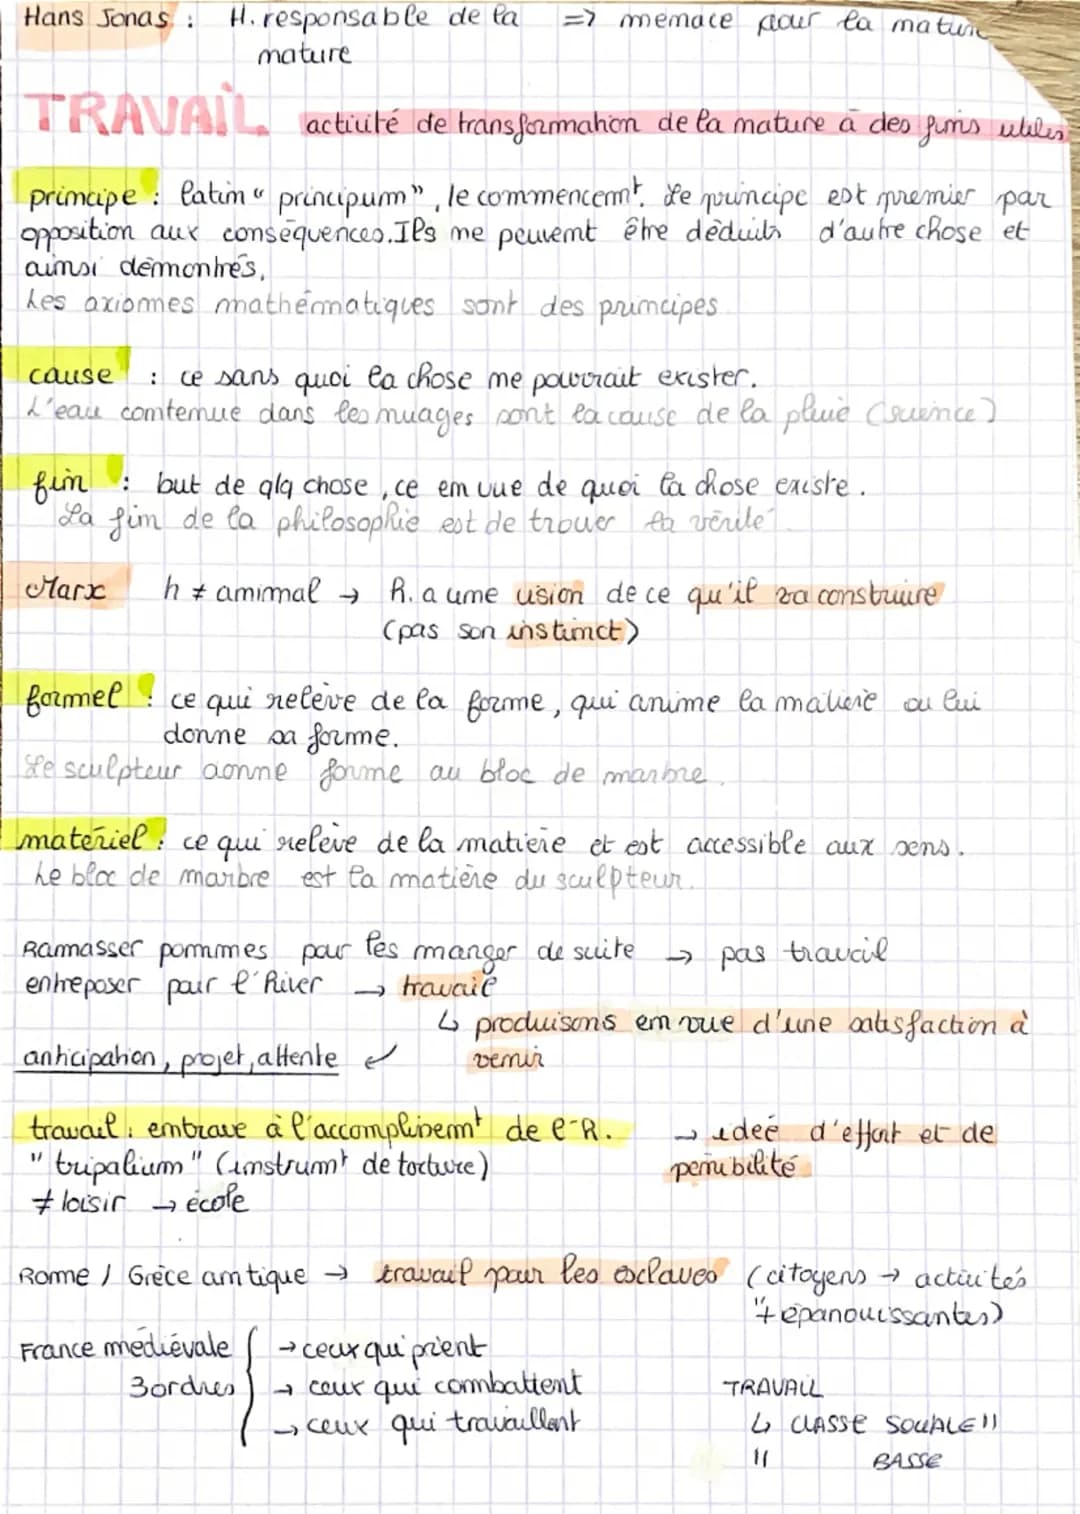 Hans Jonas : H. responsable de la => menace pour la nature
nature
TRAVAIL activité de transformation de la nature à des fins utiles
principe : latin "principum", le commencemt. Le principe est premier par
opposition aux conséquences. Ils ne peuvent être déduits d'autre chose et
ainsi démontrés,
Les axiomes mathématiques sont des principes.
cause : ce sans quoi la chose ne pourrait exister.
L'eau contenue dans les nuages sont la cause de la pluie (science)
fin : but de qlq chose, ce en vue de quoi la chose existe.
La fin de la philosophie est de trouver la vérité.
Marx h ≠ animal → h. a une vision de ce qu'il va construire
(pas son instinct)
formel : ce qui relève de la forme, qui anime la matière ou lui
donne sa forme.
Le sculpteur donne forme au bloc de marbre.
matériel : ce qui relève de la matière et est accessible aux sens.
Le bloc de marbre est la matière du sculpteur.
Ramasser pommes pour les manger de suite → pas travail
entreposer pour l'hiver → travail
↳ produisons en vue d'une satisfaction à
anticipation, projet, attente ↙ venir
travail : entrave à l'accomplissemt de l'h. → idée d'effort et de
"tripalium" (instrumt de torture) pénibilité
≠ loisir → école
Rome / Grèce antique → travail pour les esclaves (citoyens → activités
"+ épanouissantes)
France médiévale { → ceux qui prient
3 ordres → ceux qui combattent TRAVAIL
→ ceux qui travaillent ↳ CLASSE SOCIALE "
" BASSE